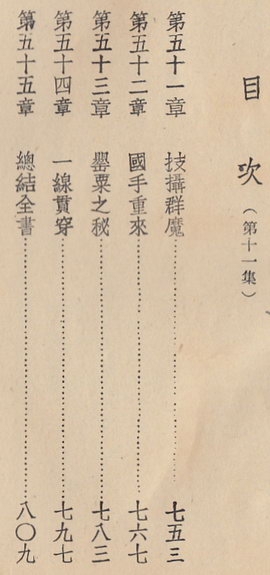 目次（第十一集）
第五十一章　技攝群魔………………七五三
第五十二章　國手重來………………七六七
第五十三章　罌粟之秘………………七八三
第五十四章　一線貫穿………………七九七
第五十五章　總結全書………………八〇九